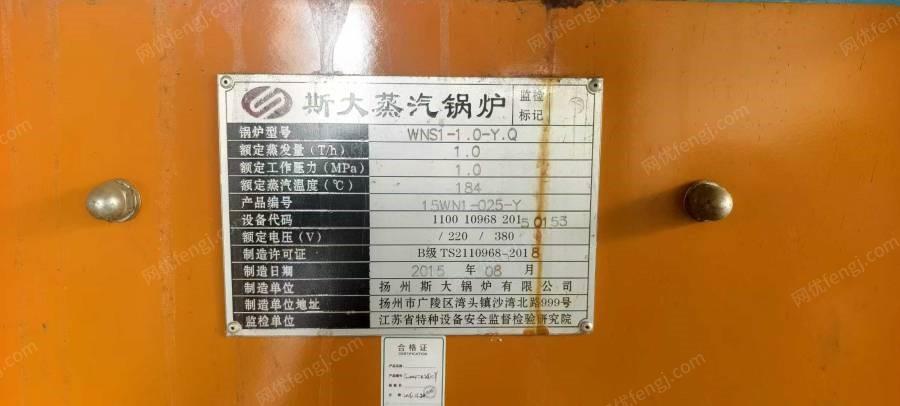 斯大蒸汽锅炉 监检标记
锅炉型号 WNS1-1.0-Y.Q
额定蒸发量(T/h) 1.0
额定工作压力(MPa) 1.0
额定蒸汽温度(℃) 184
产品编号 15WN1-025-Y
设备代码 1100 10968 201 50153
额定电压(V) /220 / 380
制造许可证 B级 TS2110968-2018
制造日期 2015 年 08 月
制造单位 扬州斯大锅炉有限公司
制造单位地址 扬州市广陵区湾头镇沙湾北路999号
监检单位 江苏省特种设备安全监督检验研究院
合格证
CERTIFICATION
产品名称
产品编号
网优fengj.com
网优fengj.com
网优fengj.com
网优fengj.com
网优fengj.com
网优fengj.com